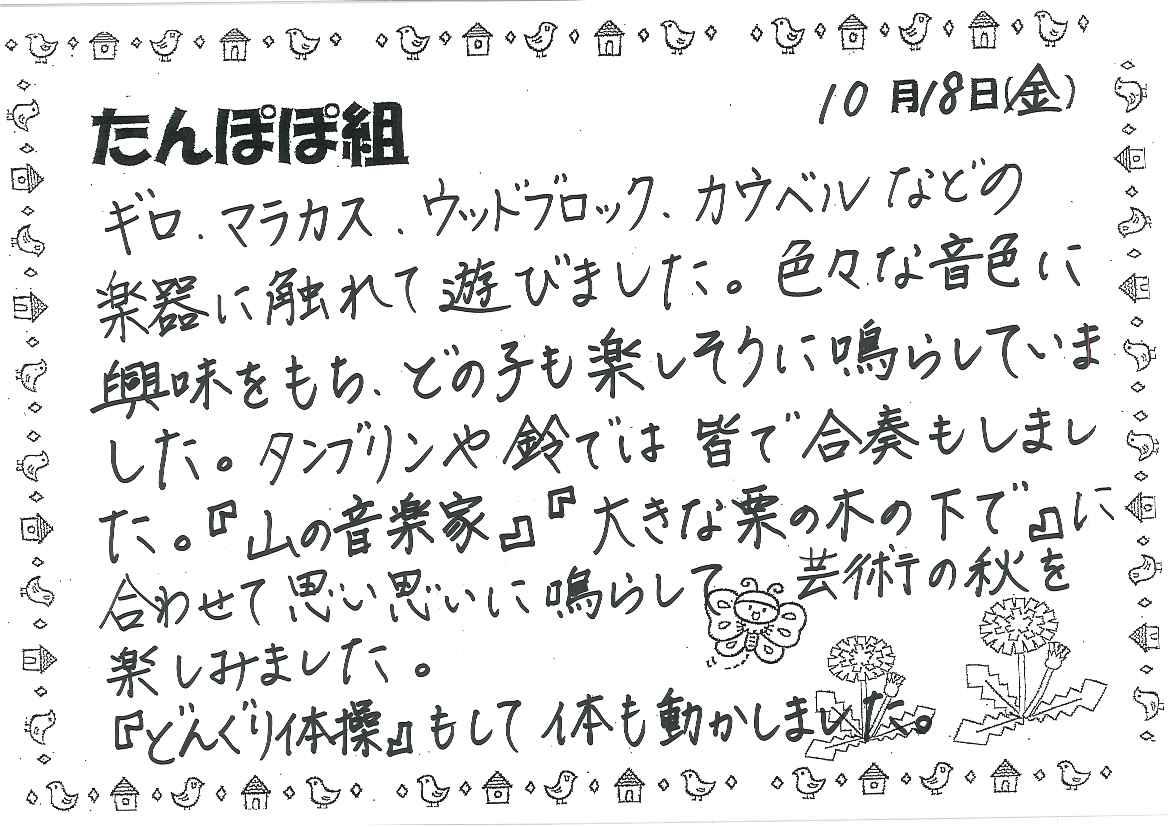 10月18日(金)
たんぽぽ組
ギロ、マラカス、ウッドブロック、カウベルなどの
楽器に触れて遊びました。色々な音色に
興味をもち、どの子も楽しそうに鳴らしていま
した。タンブリンや鈴では皆で合奏もしまし
た。『山の音楽家』『大きな栗の木の下で』に
合わせて思い思いに鳴らして 芸術の秋を
楽しみました。
『どんぐり体操』もして体も動かしました。